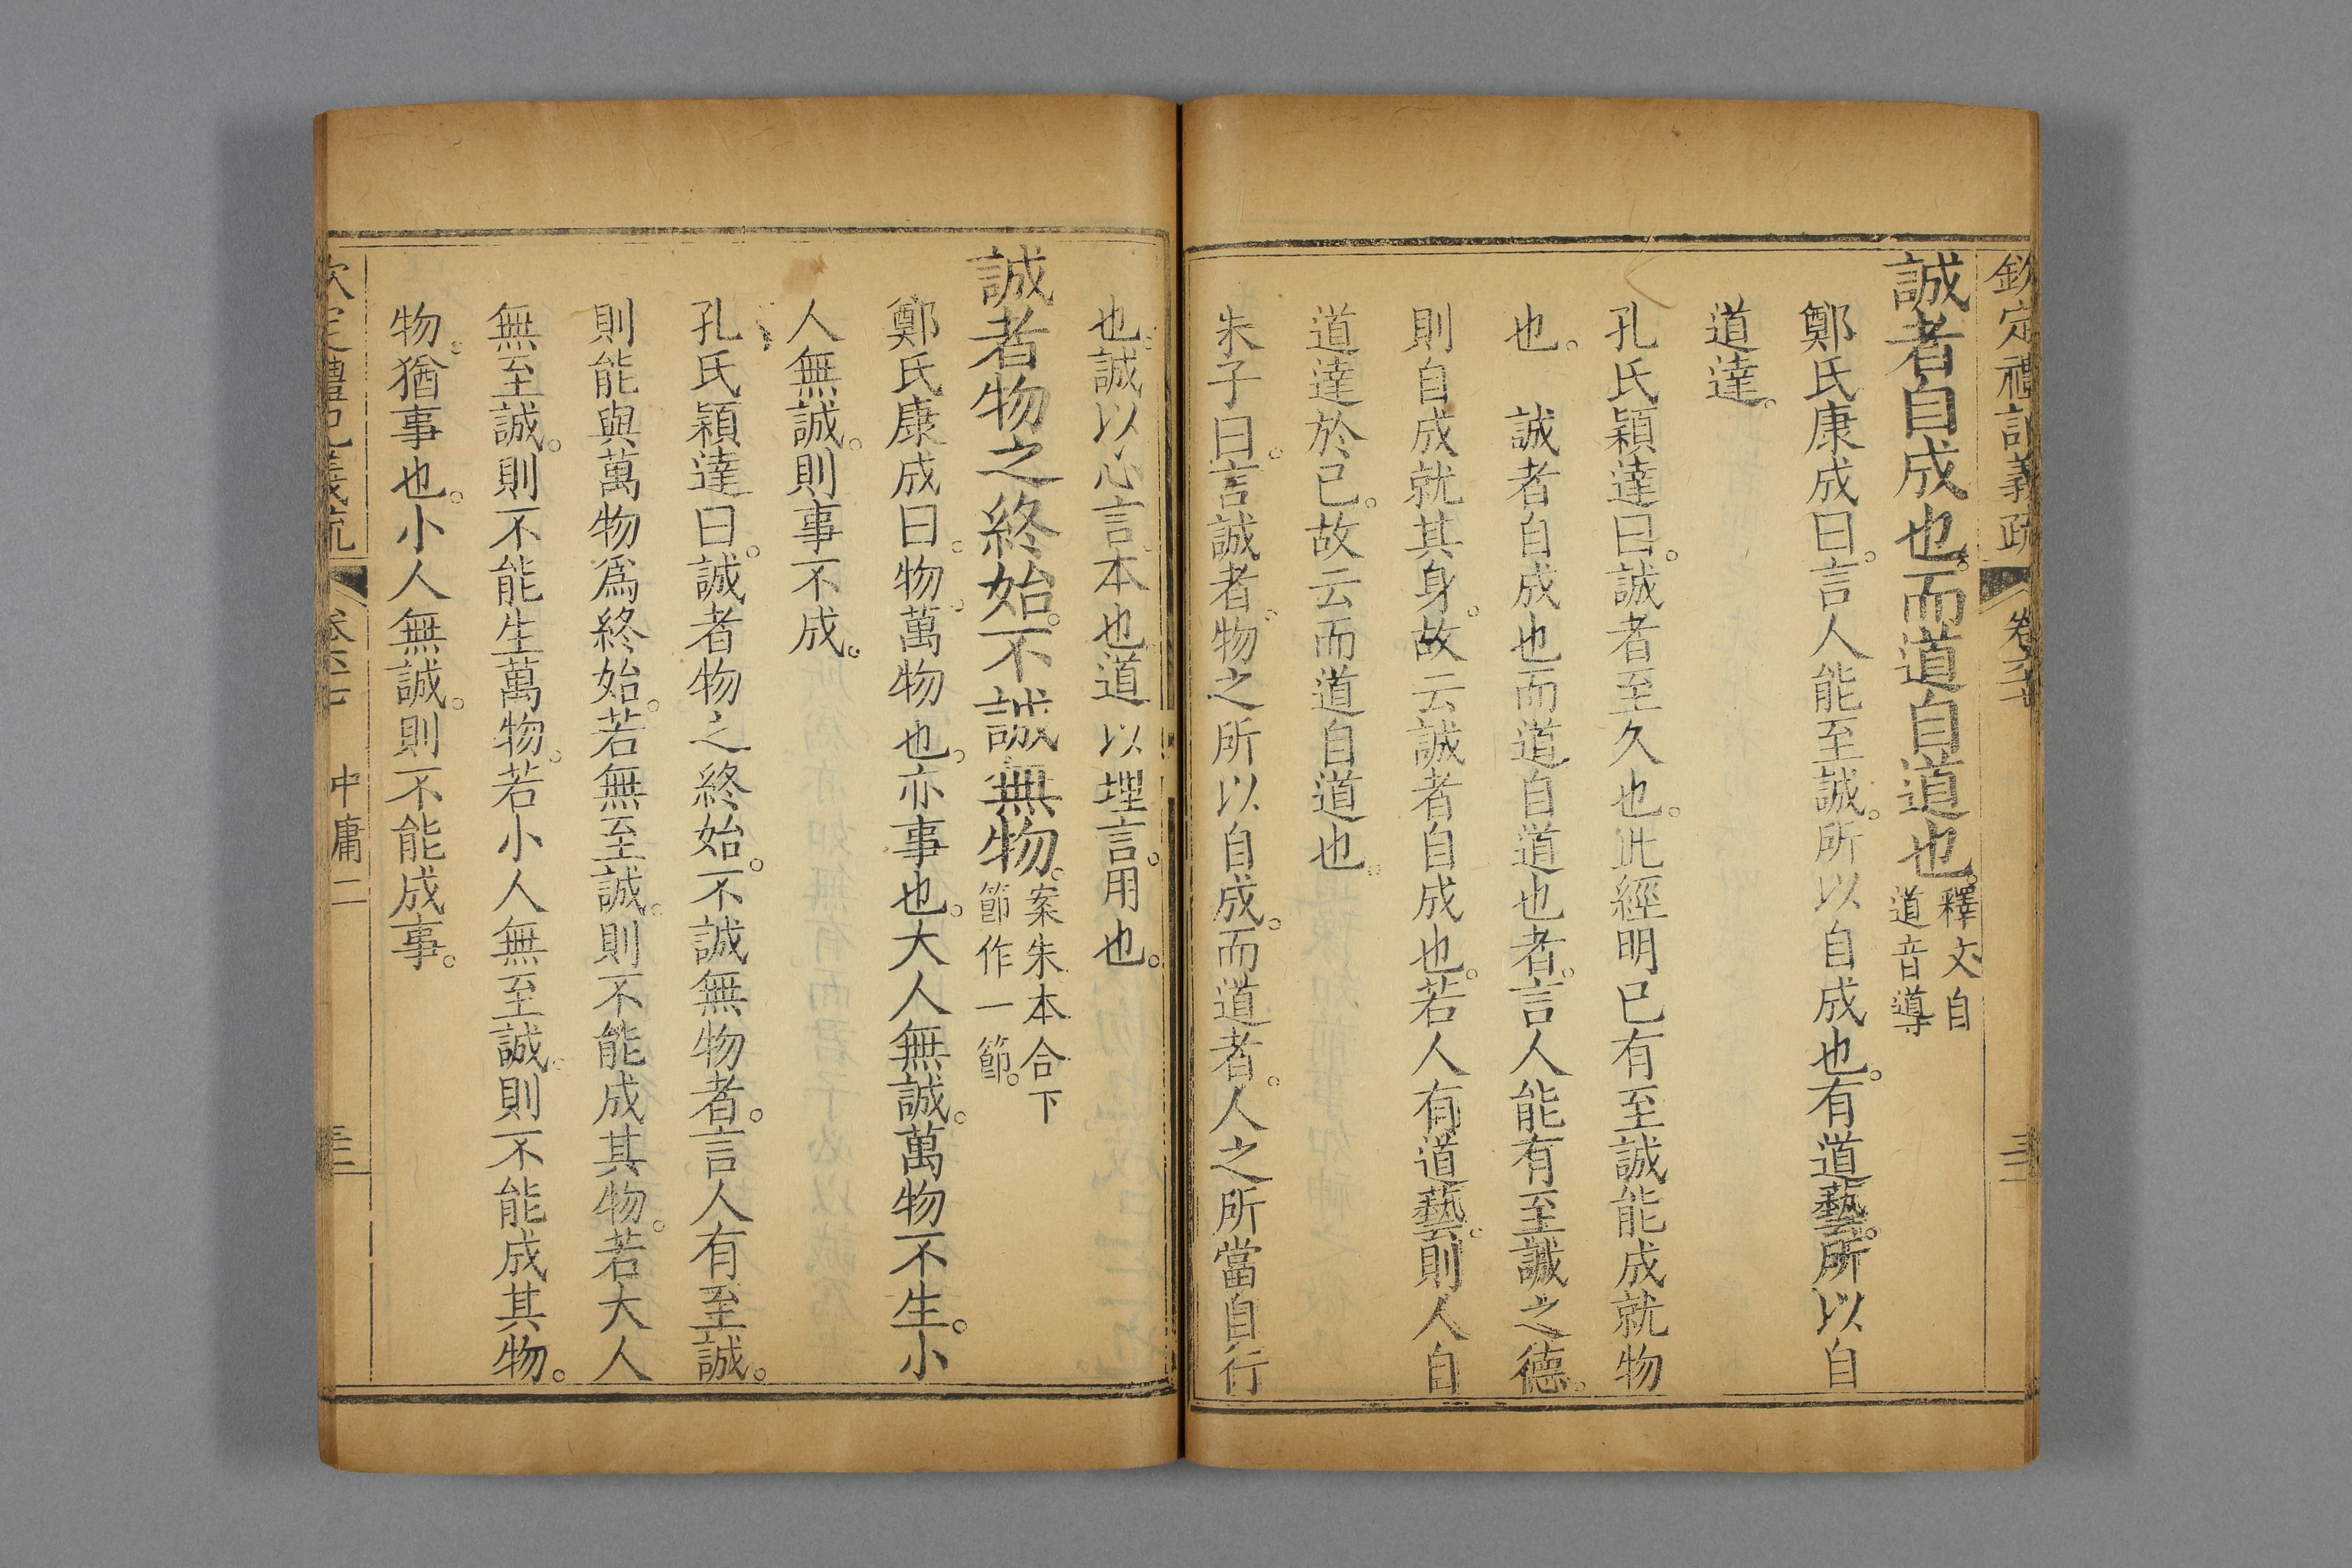 欽定禮記義疏 卷六十七 三十二
誠者自成也。而道自道也。釋文自
道音導
鄭氏康成曰。言人能至誠。所以自成也。有道藝。所以自
道達。
孔氏穎達曰。誠者至久也。此經明已有至誠能成就物
也。 誠者自成也而道自道也者。言人能有至誠之德。
則自成就其身。故云誠者自成也。若人有道藝。則人自
道達於已。故云而道自道也。
朱子曰。言誠者。物之所以自成。而道者。人之所當自行
也。誠以心言。本也。道以理言。用也。
誠者物之終始。不誠無物。案朱本合下
節作一節。
鄭氏康成曰。物。萬物也。亦事也。大人無誠。萬物不生。小
人無誠。則事不成。
孔氏穎達曰。誠者物之終始。不誠無物者。言人有至誠。
則能與萬物爲終始。若無至誠。則不能成其物。若大人
無至誠。則不能生萬物。若小人無至誠。則不能成其物。
物。猶事也。小人無誠。則不能成事。
欽定禮記義疏 中庸二